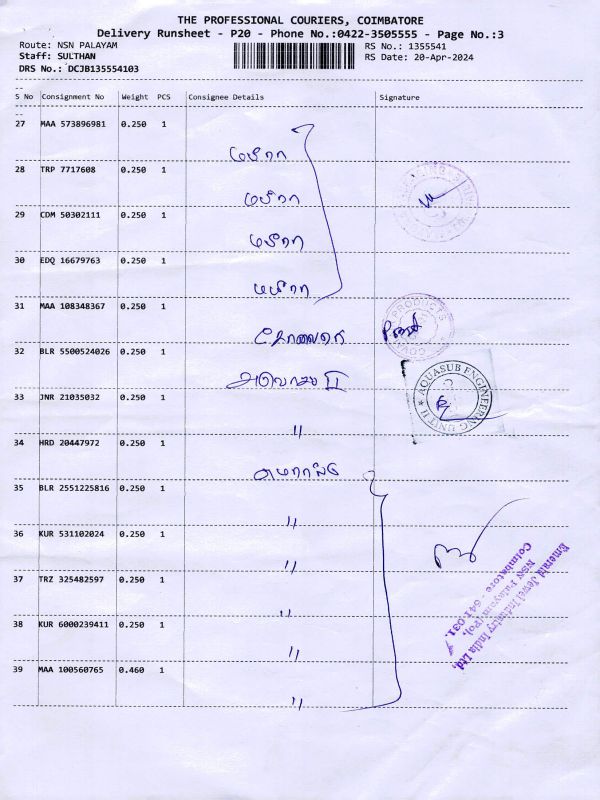 THE PROFESSIONAL COURIERS, COIMBATORE
Delivery Runsheet - P20 - Phone No.:0422-3505555 - Page No.:3
Route: NSN PALAYAM
RS No.: 1355541
Staff: SULTHAN
RS Date: 20-Apr-2024
DRS No.: DCJB135554103
S No Consignment No Weight PCS Consignee Details Signature
27 MAA 573896981 0.250 1
28 TRP 7717608 0.250 1
29 CDM 50302111 0.250 1
30 EDQ 16679763 0.250 1
31 MAA 108348367 0.250 1
PRODUCTS
32 BLR 5500524026 0.250 1
AQUASUB ENGINEERING UNIT II
33 JNR 21035032 0.250 1
"
34 HRD 20447972 0.250 1
35 BLR 2551225816 0.250 1
"
36 KUR 531102024 0.250 1
"
37 TRZ 325482597 0.250 1
"
38 KUR 6000239411 0.250 1
"
39 MAA 100560765 0.460 1
"
Emerald Jewel Industry India Ltd,
NSN Palayam (Po),
Coimbatore - 641 031.